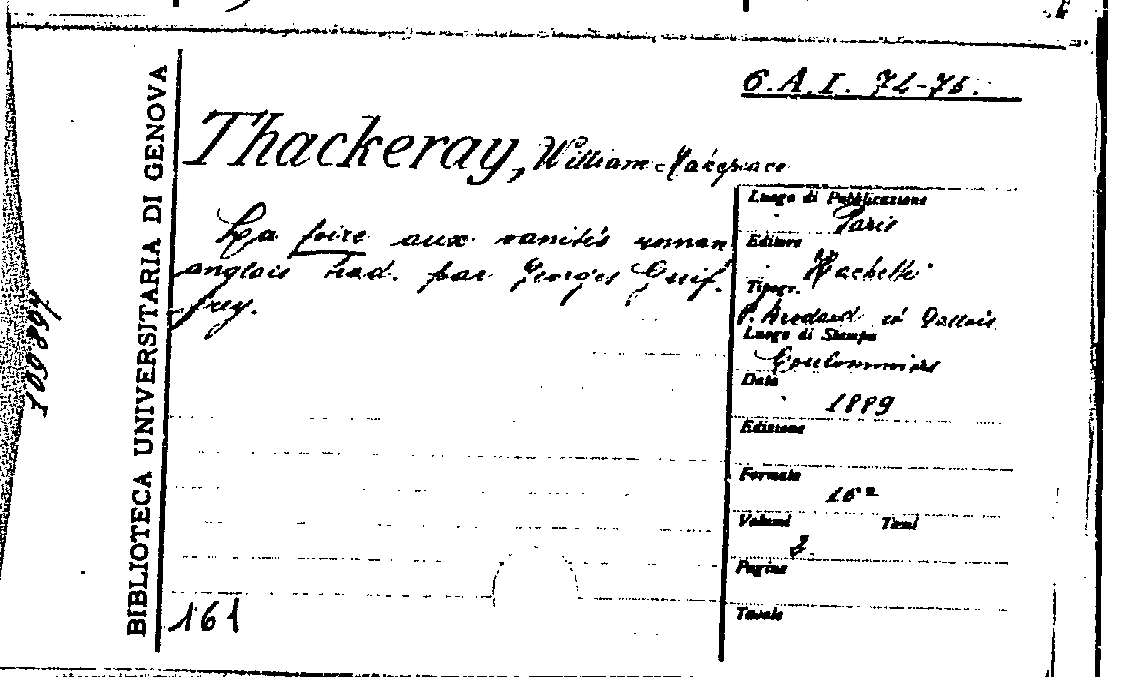 6.A.I. 74-75.
Thackeray, William Makepeace
La foire aux vanités roman
anglais trad. par Georges Guif.
frey.
Luogo di Pubblicazione
Paris
Editore
Hachette
Tipogr.
P. Brodard et Gallois
Luogo di Stampa
Coulommiers
Data
1889
Edizione
Formato
16°
Volumi Tomi
2.
Pagine
Tavole
161
BIBLIOTECA UNIVERSITARIA DI GENOVA